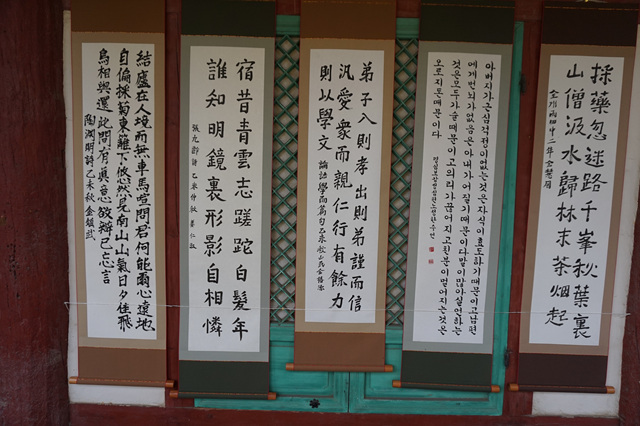 採藥忽迷路千峯秋葉裏
山僧汲水歸林末茶烟起
아버지가근심걱정이없는것은자식이효도하기때문이고남편
에게번뇌가없음은아내가어질기때문이다말이많아실언하는
것은모두가술때문이고의리가끊어지고친분이멀어지는것은
오로지돈때문이다
弟子入則孝出則弟謹而信
汎愛衆而親仁行有餘力
則以學文 論語學而篇句乙未秋
宿昔青雲志蹉跎白髮年
誰知明鏡裏形影自相憐
張九齡詩 乙未仲秋
結廬在人境而無車馬喧問君何能爾心遠地
自偏採菊東籬下悠然見南山山氣日夕佳飛
鳥相與還此間有眞意欲辯已忘言
陶淵明詩乙未秋金鎭武